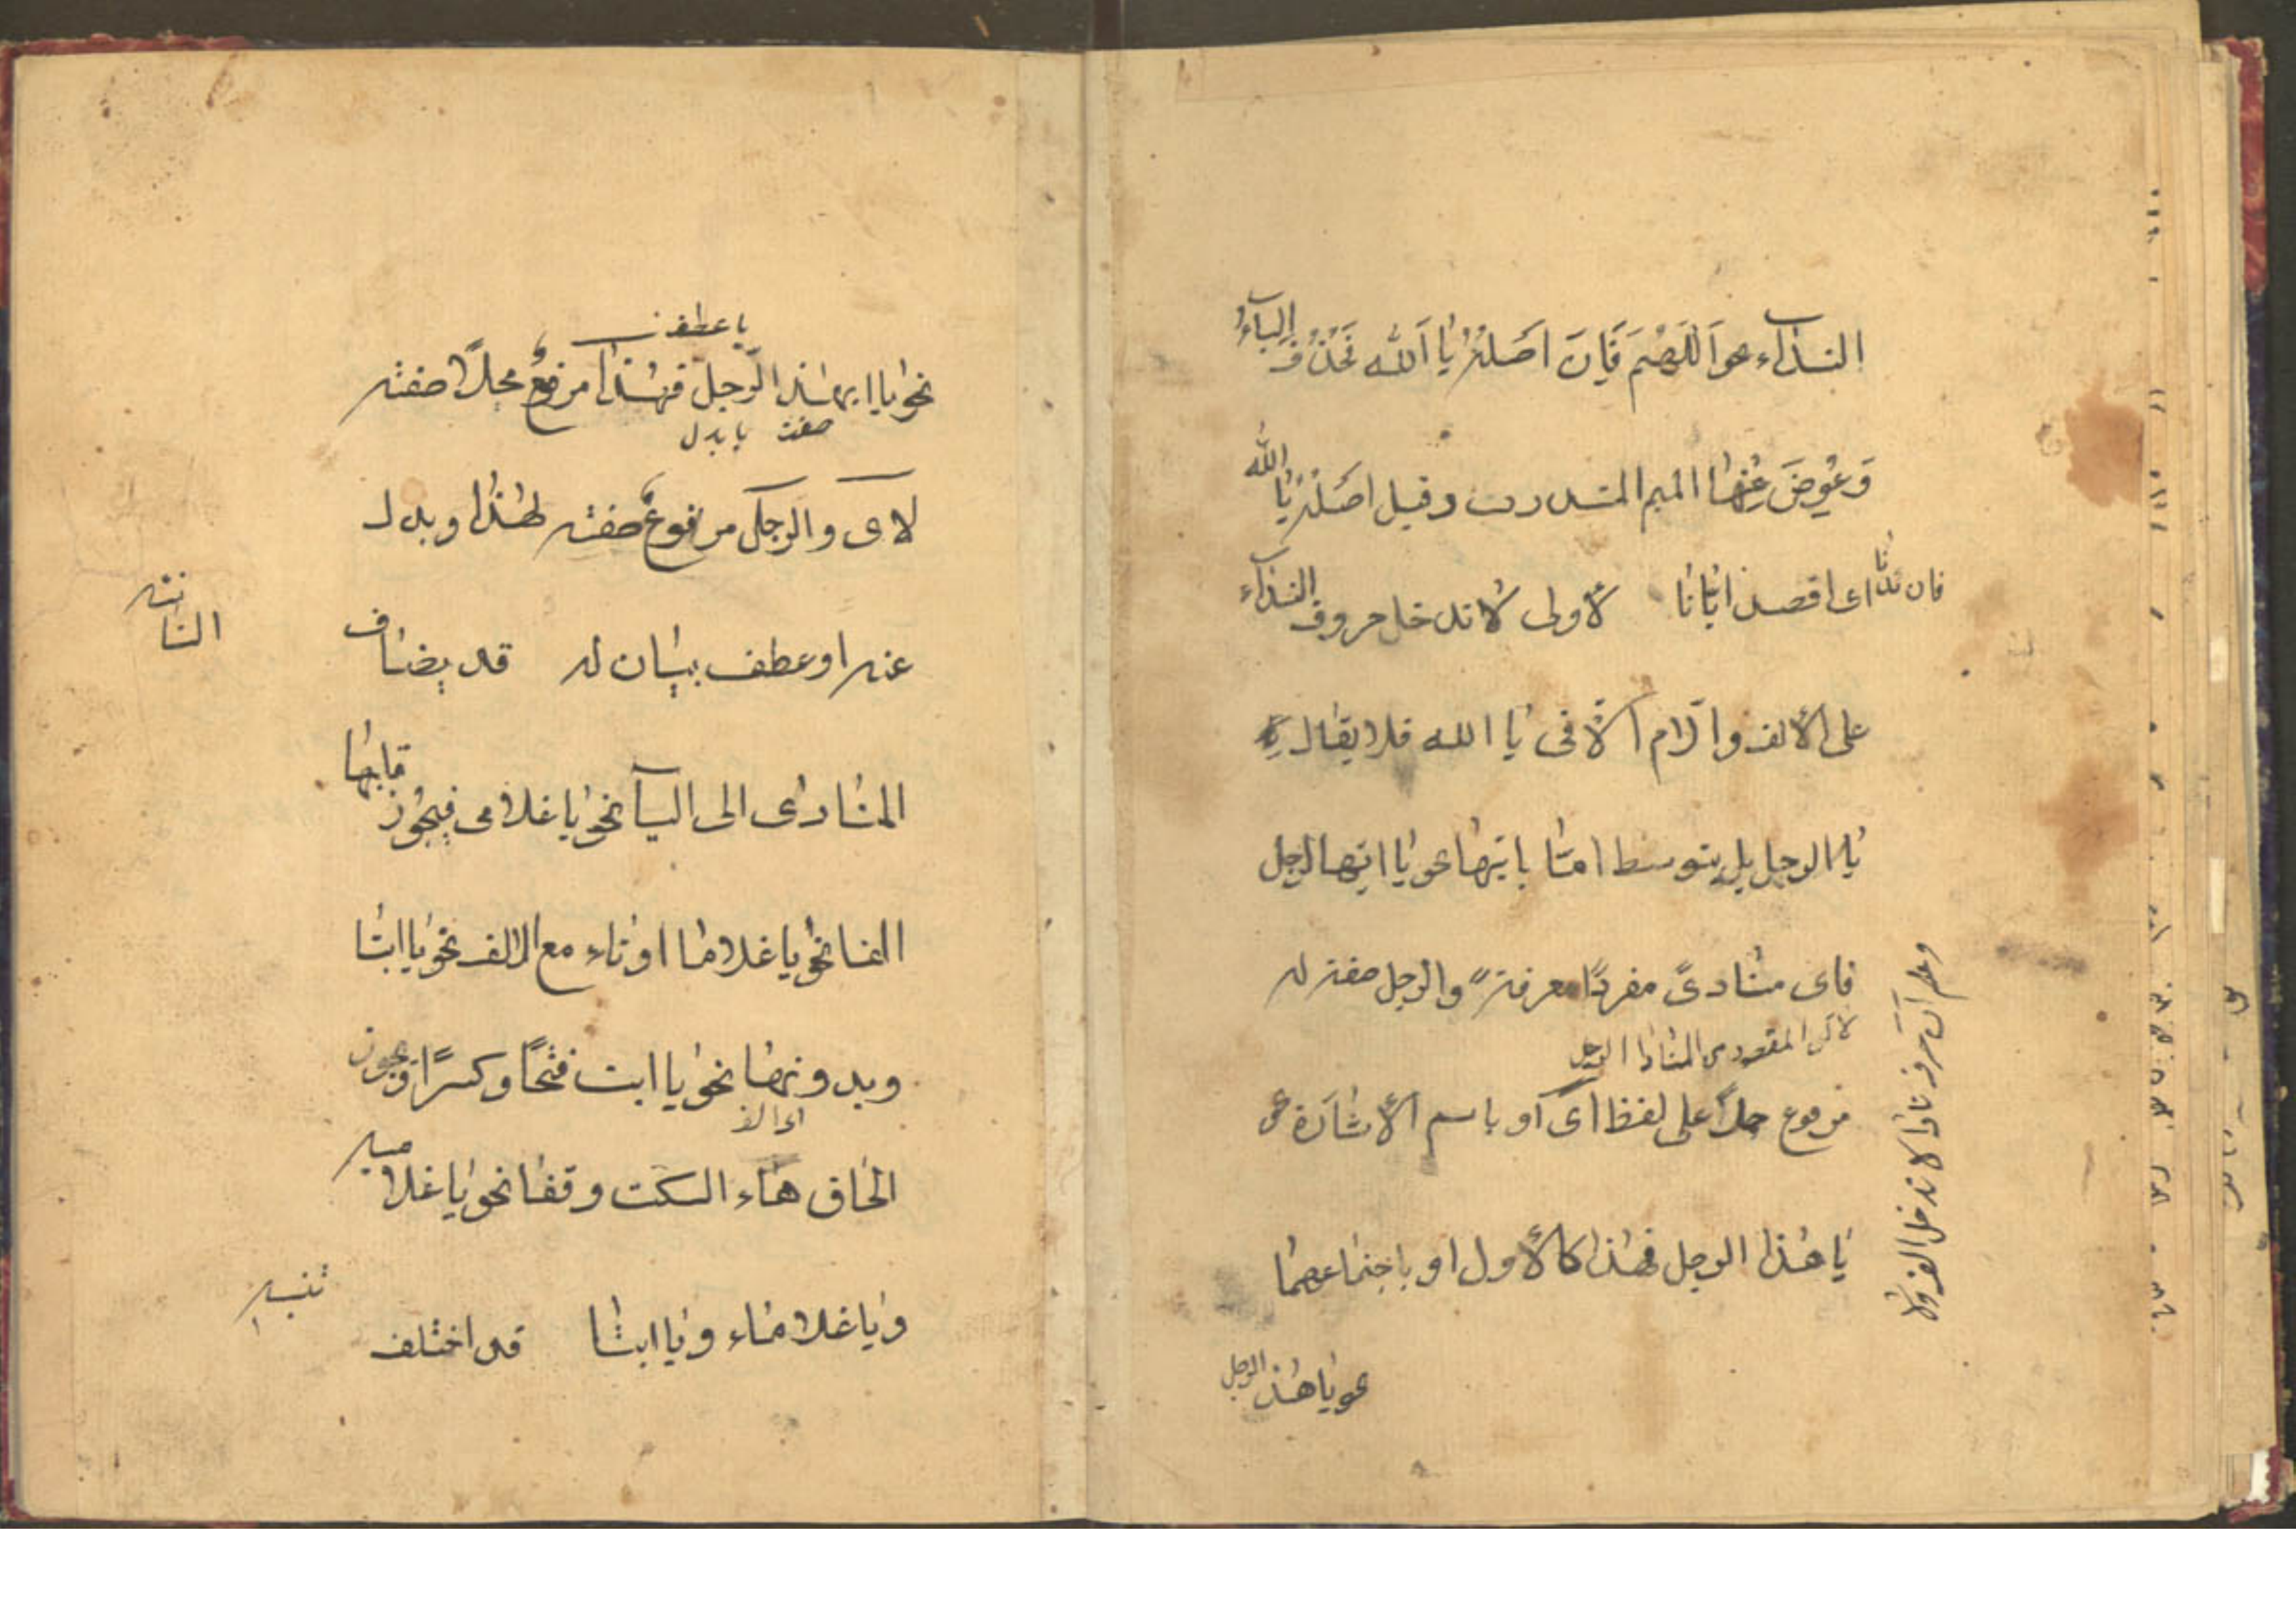 النداء نحو اَللّهُمَّ فَاِنَّ اَصْلَهُ يا اَلله فَحُذِفَ الياءُ
وَعُوِضَ عَنْها الميم المشددت وقيل اصَلْهُ يا الله
فان
اى اقصدنا باثنا الأولى لا تدخل حروف النداء
على الألف والّام الّا فى يا الله فلا يقال
يا الرجل بل يتوسط امّا بايّها نحو يا ايّها الرجل
فاى منادىً مفردًا معرفةً والرجل صفته له
لانّ المقصود من المنادا الرجل
مرفوع حملاً على لفظ اى اَو باسم الأشارة نحو
يا هذا الرجل فهذا كالأول او باجتماعهما
نحو يا هذا الرجل
وعلم انّ حرف نادا لا تدخل الف ولا
يا عطف
نحو يا ايهذا الرّجل فهذا مرفوعٌ محلاً صفته
صفت يا بدل
لاى والرجل مرفوعٌ صفته لهذا وبدل
عنه او عطف بيان له قد يضاف
الثانيه
المنادى الى اليآ نحو يا غلامى فيجوز قلبها
الفا نحو يا غلاما او تاء مع الالف نحو يا ابتا
وبدونها نحو يا ابت فتحًا وكسرًا ويجوز
اى الف
الحاق هاء السكت وقفا نحو يا غلاميه
ويا غلاماه ويا ابتا قد اختلف
تنبيه